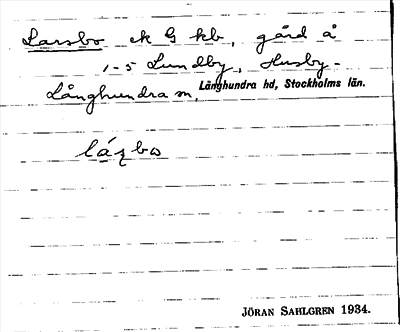 Larsbo ek G kb, gård å
1-5 Lundby, Husby-
Långhundra sn, Långhundra hd, Stockholms län.
lázbo
JÖRAN SAHLGREN 1934.